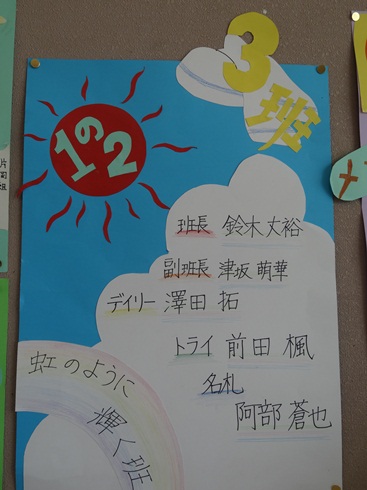 3班
1の2
班長 鈴木丈裕
副班長 津坂萌華
デイリー 澤田拓
トライ 前田楓
名札
阿部蒼也
虹のように
輝く班